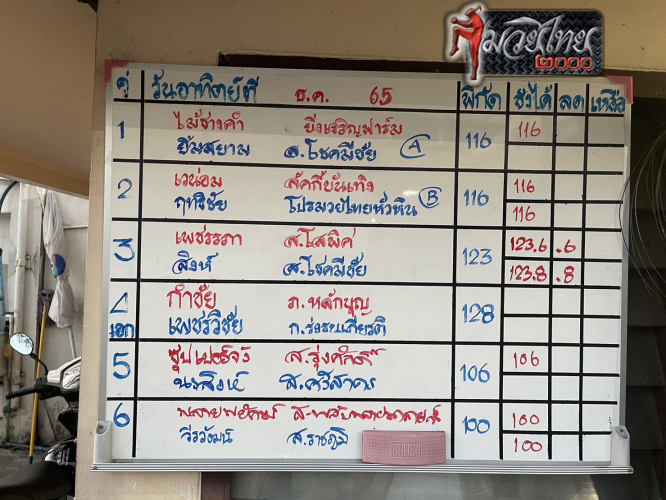 มวยไทย
๒๐๐๐
คู่ วันอาทิตย์ที่ ธ.ค. 65 พิกัด ชั่งได้ ลด เหลือ
1 ไม้ซางคำ ยิ่งเจริญฟาร์ม 116
ยิ้มสยาม ส.โชคมีชัย A 116
2 เวน่อม ลัคกี้บันเทิง 116
ฤทธิชัย โปรมวยไทยหัวหิน B 116
116
3 เพชรรดา ส.โสพิศ 123.6 .6
สิงห์ ส.โชคมีชัย 123 123.8 .8
4 กำชัย ภ.หลักบุญ
เอก เพชรวิชัย ก.รุ่งธนเกียรติ 128
5 ซุปเปอร์จ๋ง ส.รุ่งศักดิ์ 106
นรสิงห์ ส.ศรีสาคร 106
6 100
จีรวัฒน์ ส.ราชภูมิ 100 100